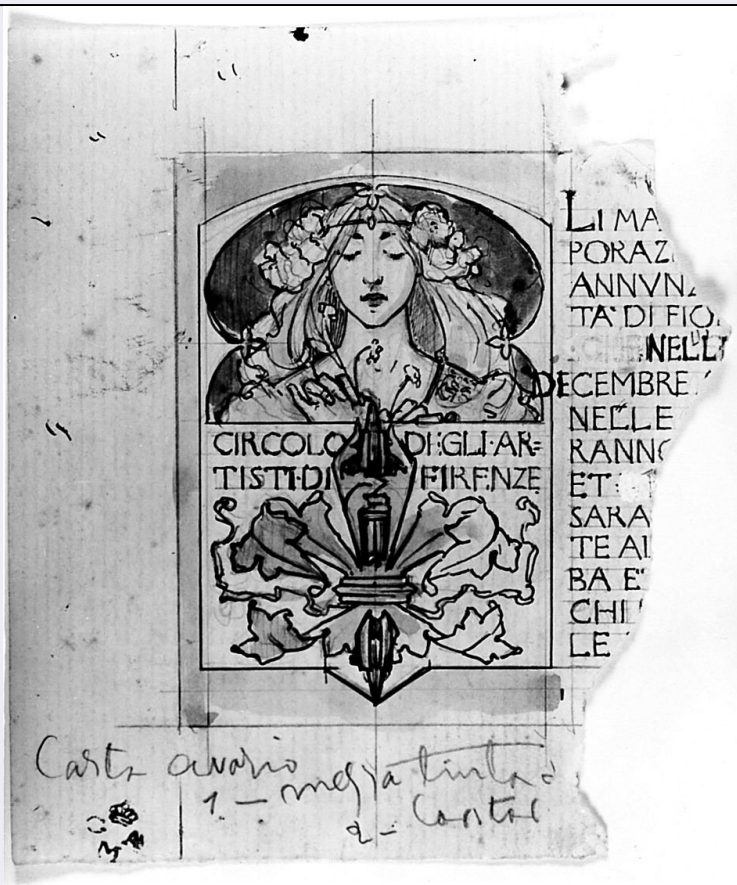 CIRCOLO DEGLI·AR=
TISTI·DI FIRENZE
LI MA
PORAZI
ANNVNA
TA' DI FIO
NELL
DECEMBRE
NELLE
RANNO
ET
SARA
TE AL
BA E'
CHI
LE
Carta avorio
1 – mezza tinta
2 –